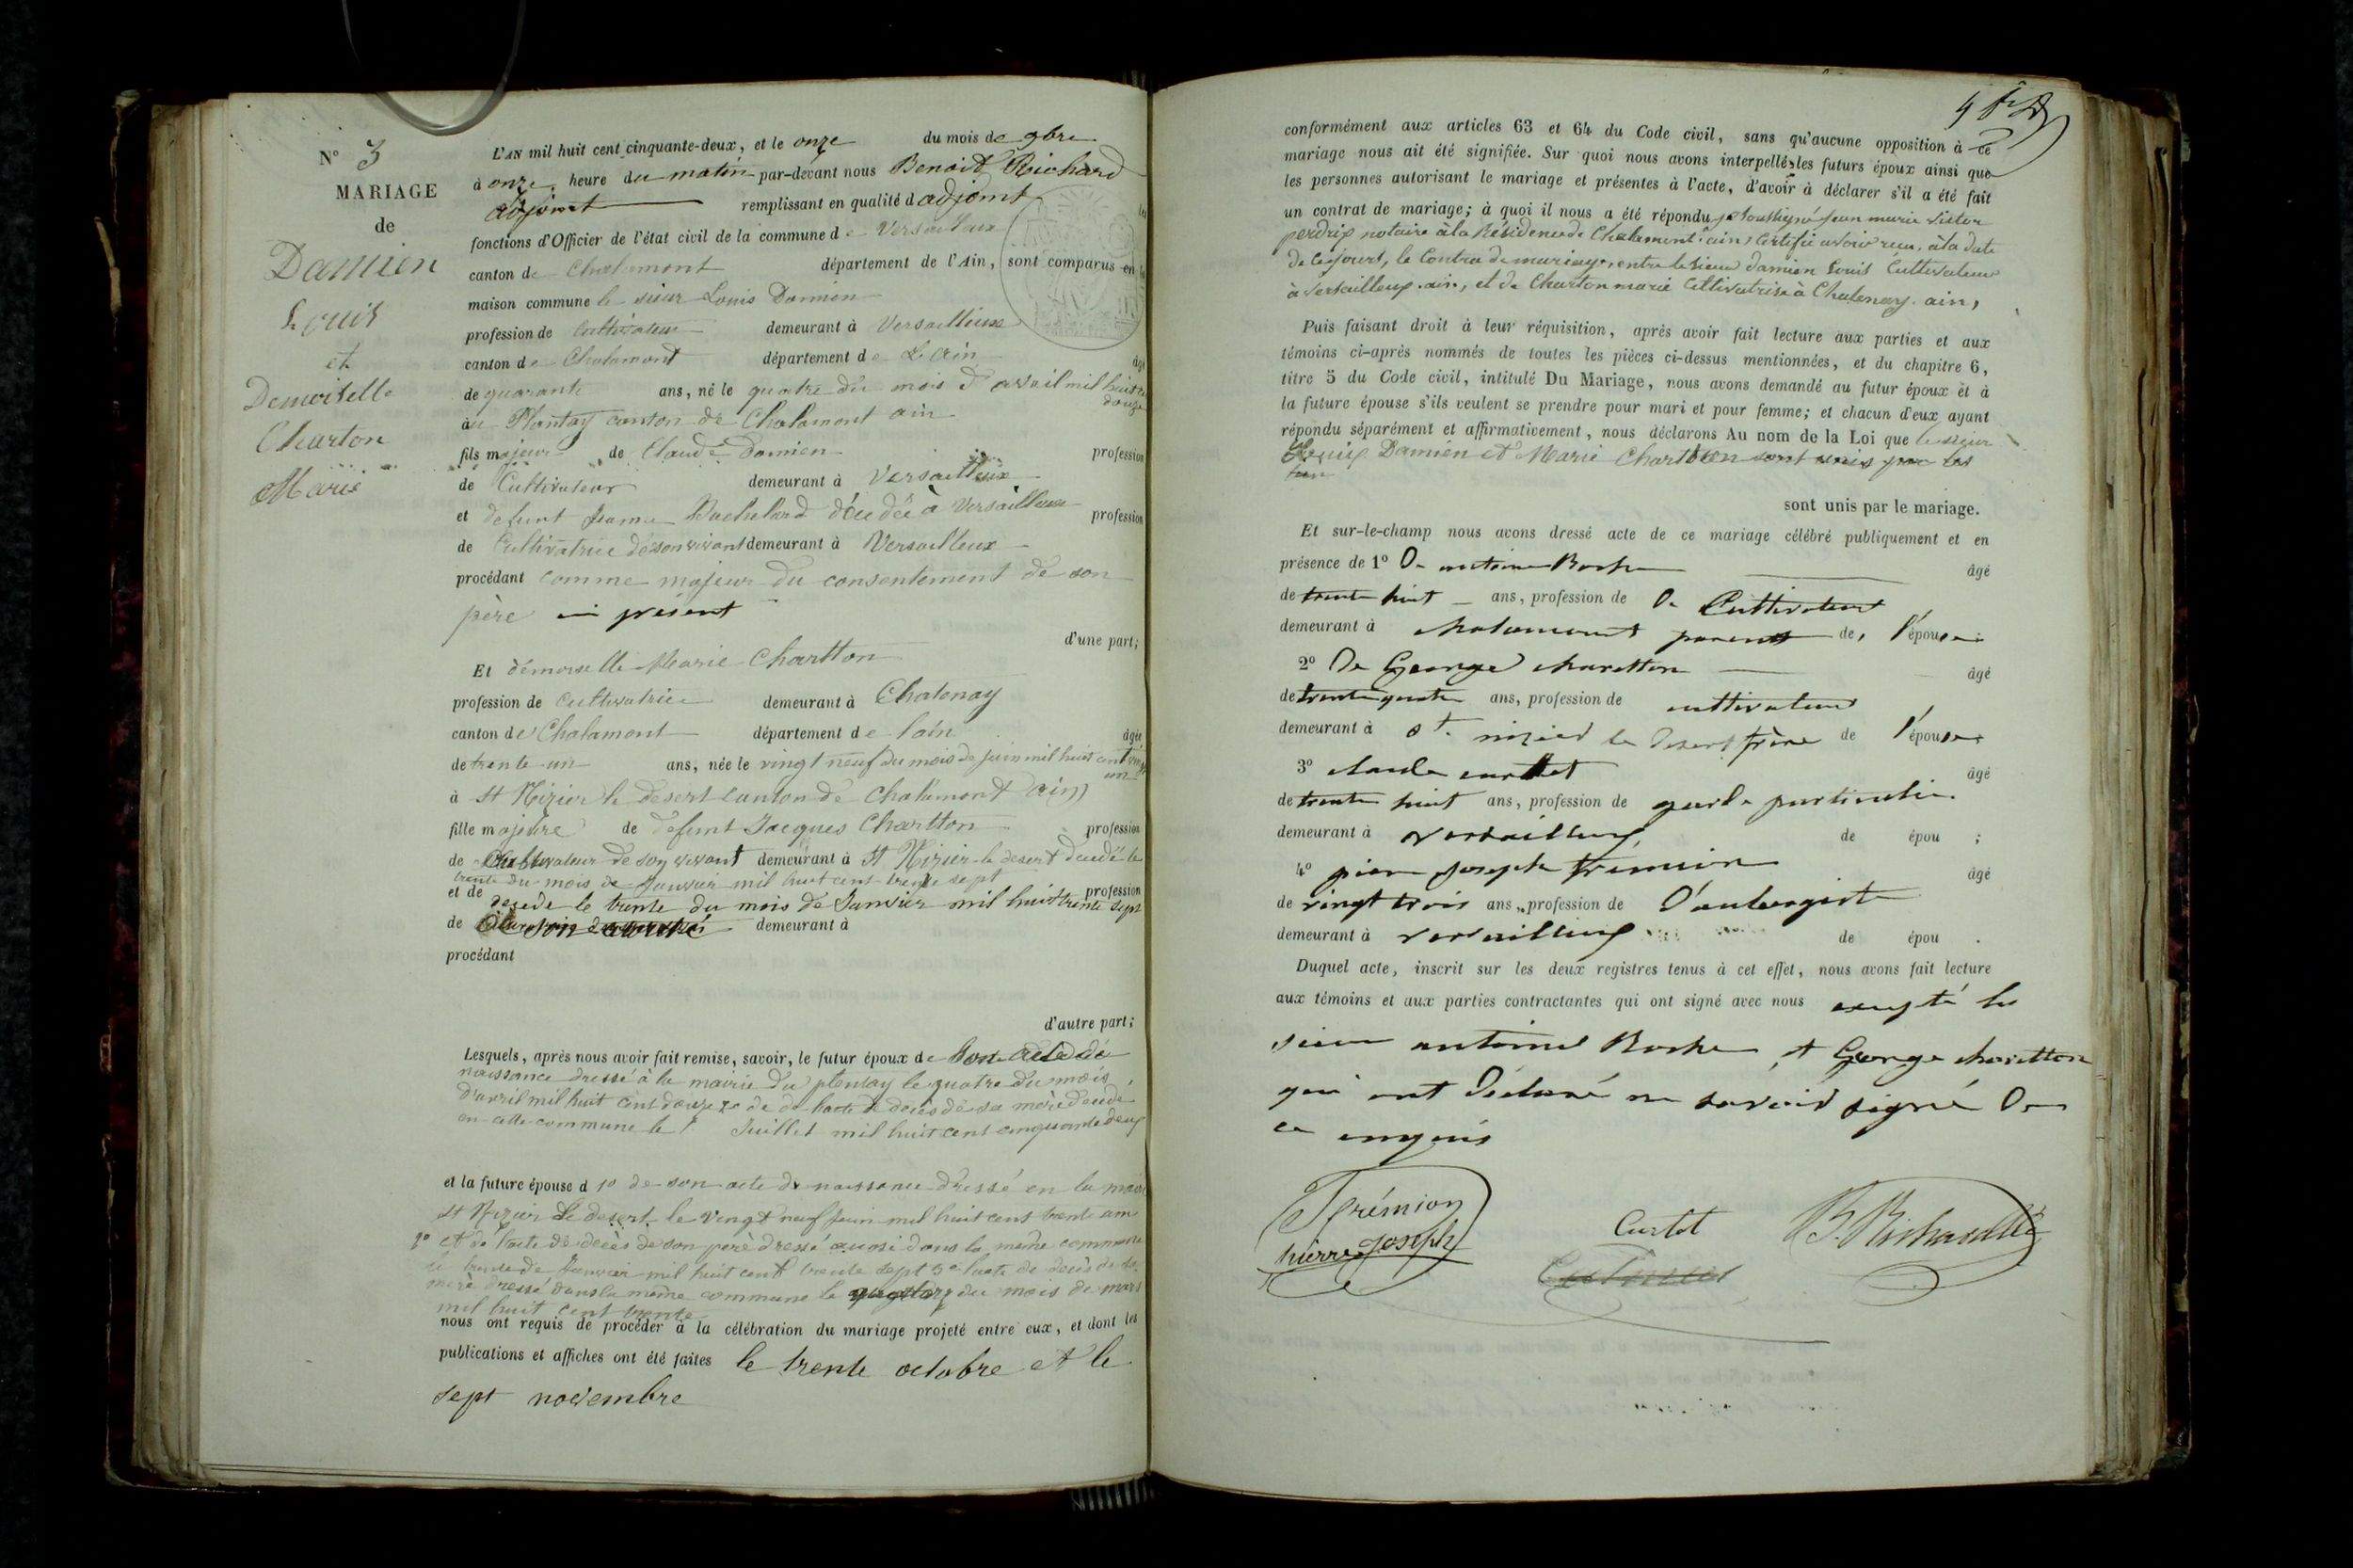 N° 3
MARIAGE
de
Damien
Louis
et
Demoiselle
Charton
Marie
L'AN mil huit cent cinquante-deux, et le onze du mois de 9bre
à onze heure du matin par-devant nous Benoit Richard
adjoint remplissant en qualité d'adjoint les
fonctions d'Officier de l'état civil de la commune de Versailleux
canton de Chalamont département de l'Ain, sont comparus en la
maison commune le sieur Louis Damien
profession de cultivateur demeurant à Versailleux
canton de Chalamont département de L'ain âgé
de quarante ans, né le quatre du mois d'avril mil huit c
douze
au Plantay canton de Chalamont ain
fils majeur de Claude Damien profession
de Cultivateur demeurant à Versailleux
et defunt Jeanne Bachelard décédée à Versailleux profession
de Cultivatrice de son vivant demeurant à Versailleux
procédant comme majeur du consentement de son
père ici présent
d'une part;
Et démoiselle Marie Chartton
profession de Cultivatrice demeurant à Chatenay
canton de Chalamont département de l'ain âgée
de trente un ans, née le vingt neuf du mois de juin mil huit cent vingt
un
à St Nizier le desert canton de Chalamont ain
fille majeure de defunt Jacques Chartton profession
de Cultivateur de son vivant demeurant à St Nizier le desert decédé le
trente du mois de Janvier mil huit cent trente sept
et de profession
décédé le trente du mois de Janvier mil huit trente sept
de demeurant à
procédant
d'autre part;
Lesquels, après nous avoir fait remise, savoir, le futur époux de son acte de
naissance dressé à la mairie du plentay le quatre du mois
D'avril mil huit cent douze 2° de l'acte de décès de sa mère décédé
en cette commune le Juillet mil huit cent cinquante deux
et la future épouse d 1° de son acte de naissance dressé en la mairie
St Nizier Le desert le vingt neuf juin mil huit cent trente un
2° et de l'acte de décès de son père dressé aussi dans la même commune
le trente de Janvier mil huit cent trente sept 3° l'acte de décès de sa
mère dressé dans la même commune le quatorz du mois de mars
mil huit cent trente
nous ont requis de procéder à la célébration du mariage projeté entre eux, et dont les
publications et affiches ont été faites le trente octobre et le
sept novembre
conformément aux articles 63 et 64 du Code civil, sans qu'aucune opposition à ce
mariage nous ait été signifiée. Sur quoi nous avons interpellé les futurs époux ainsi que
les personnes autorisant le mariage et présentes à l'acte, d'avoir à déclarer s'il a été fait
un contrat de mariage; à quoi il nous a été répondu je soussigné Jean marie Victor
perdrix notaire à la Résidence de Chalamont (ain) Certifie avoir reçu, à la date
de ce jours, le Contra de mariage, entre le sieur damien Louis Cultivateur
à Versailleux. ain, et de Charton marie Cultivatrise à Chatenay. ain,
Puis faisant droit à leur réquisition, après avoir fait lecture aux parties et aux
témoins ci-après nommés de toutes les pièces ci-dessus mentionnées, et du chapitre 6,
titre 5 du Code civil, intitulé Du Mariage, nous avons demandé au futur époux et à
la future épouse s'ils veulent se prendre pour mari et pour femme; et chacun d'eux ayant
répondu séparément et affirmativement, nous déclarons Au nom de la Loi que le sieur
Louis Damien et Marie Chartton sont unis par les
sont unis par le mariage.
Et sur-le-champ nous avons dressé acte de ce mariage célébré publiquement et en
présence de 1° De antoine Boche âgé
de trente huit ans, profession de De Cultivateur
demeurant à chalamont parent de, l'épouse
2° De George charetton âgé
de trente quatre ans, profession de cultivateur
demeurant à St. nizier le Desert frère de l'épouse
3° claude curtet âgé
de trente huit ans, profession de garde particulier
demeurant à versailleux de épou ;
4° pierre joseph tremion âgé
de vingt trois ans, profession de D'aubergiste
demeurant à versailleux de épou .
Duquel acte, inscrit sur les deux registres tenus à cet effet, nous avons fait lecture
aux témoins et aux parties contractantes qui ont signé avec nous excepté les
sieur antoine Boche et George charetton
qui ont Déclaré ne savoir signé De
ce enquis
Trémion
pierre Joseph
Curtet
B. Richard